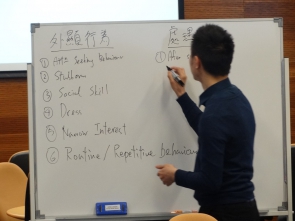 外顯行為
① Att Seeking behaviour
② Stubborn
③ Social Skill
④ Dress
⑤ Narrow Interest
⑥ Routine / Repetitive behaviour
處理
①